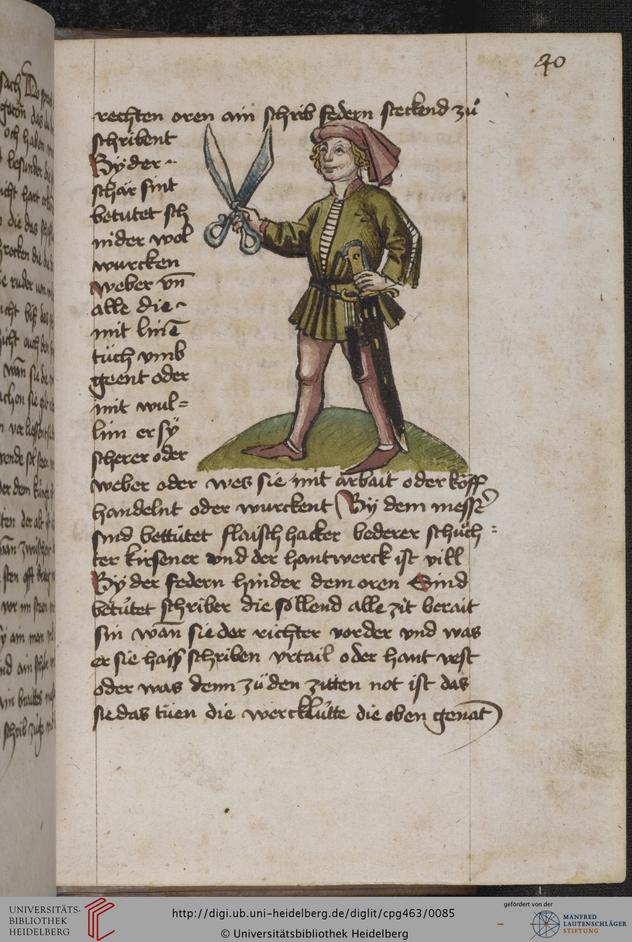 40
rechten oren ain schrib federn steckend zů
schribent
By der
schär sint
betütet sch
nider wol
wurcken
weber vn̄
alle die
mit linē
tůch vmb
geent oder
mit wul=
lin er sy
scherer oder
weber oder wes sie mit arbait oder köff
handelnt oder wurckent By dem messer
sind bettütet flaischhacker lederer schůch=
ster kirsener vnd der hantwerck ist vill
By der federn hinder dem oren Sind
betütet schriber die söllend alle zit berait
sin wān sie der richter vorder vnd was
er sie haiss schriben vrtail oder hant vest
oder was denn zů den zitten not ist das
sie das tüen die wercklütte die oben genāt
UNIVERSITÄTS-
BIBLIOTHEK
HEIDELBERG
http://digi.ub.uni-heidelberg.de/diglit/cpg463/0085
© Universitätsbibliothek Heidelberg
gefördert von der
MANFRED
LAUTENSCHLÄGER
STIFTUNG